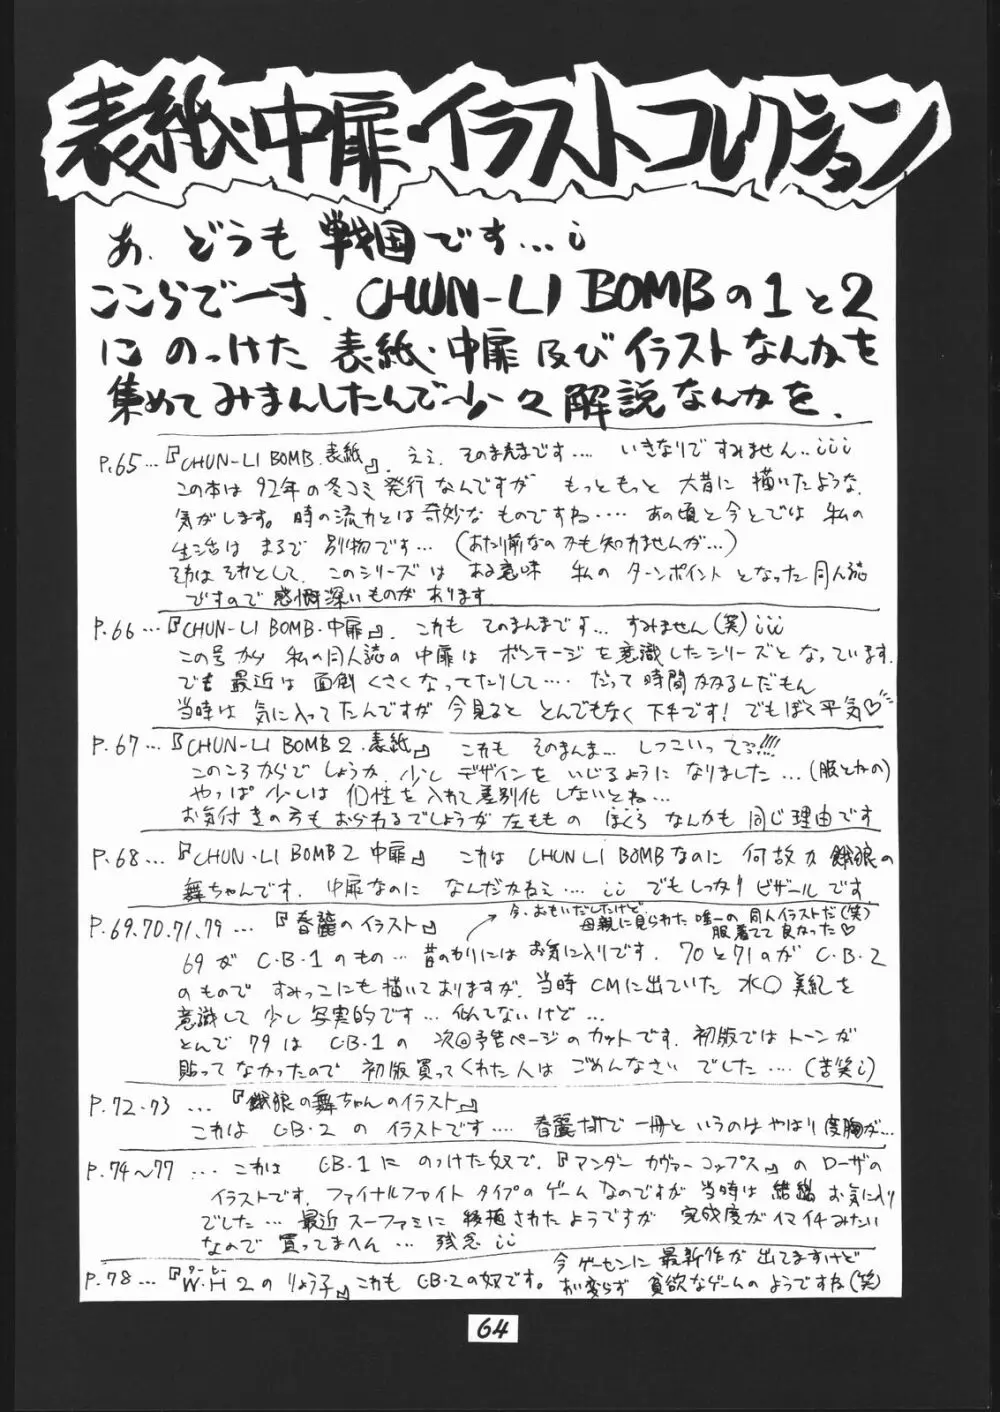 表紙・中扉・イラストコレクション
あ、どうも 戦国です...¡
ここらで一寸、CHUN-LI BOMBの1と2
に のっけた 表紙・中扉 及び イラスト なんかを
集めて みまんしたんで 少々 解説なんかを、
P.65...『CHUN-LI BOMB.表紙』、ええ、そのまんまです.... いきなりで すみません..¡¡¡
この本は 92年の冬コミ発行なんですが もっともっと 大昔に 描いたような、
気がします。時の流れとは奇妙な ものですね.... あの頃と今とでは 私の
生活は まるで 別物です... (あたり前なのかも知れませんが...)
それはそれとして、このシリーズは ある意味 私の ターンポイント となった同人誌
ですので 感慨深いものがあります
P.66...『CHUN-LI BOMB・中扉』、これも そのまんまです... すみません(笑)¡¡¡
この号から 私の同人誌の 中扉は ボンテージを意識したシリーズと なっています.
でも 最近は 面倒くさくなってたりして.... だって 時間かかるんだもん
当時は 気に入ってたんですが 今見ると とんでもなく 下手です! でもぼく平気♡
P.67...『CHUN-LI BOMB 2.表紙』 これも そのまんま... しつこいってる!!!!
このころからで しょうか、少し デザインを いじるように なりました...(服とかの)
やっぱ 少しは 個性を 入れて差別化 しないとね...
お気付きの方も おられるでしょうが 左ももの ほくろ なんかも 同じ理由です
P.68...『CHUN・LI BOMB 2 中扉』 これは CHUN LI BOMBなのに 何故か 餓狼の
舞ちゃんです. 中扉なのに なんだかねえ.... ¡¡ でもしっかり ビザールです
P.69.70.71.79... 『春麗のイラスト』
今、おもいだしたけど
母親に見られた 唯一の 同人イラストだ(笑)
服着てて 良かった♡
69が C・B・1 のもの... 昔のわりには お気に入りです. 70と71のが C・B・2
のもので すみっこにも描いておりますが、当時 CMに出ていた 水○美紀を
意識して 少し 写実的です... 似てないけど...
とんで 79は C・B・1 の 次回予告ページの カットです. 初版では トーンが
貼ってなかったので 初版買ってくれた人は ごめんなさい でした.... (苦笑¡)
P.72.73 ... 『餓狼の舞ちゃんのイラスト』
これは C・B・2 の イラストです.... 春麗だけで 一冊と いうのは やはり 度胸が...
P.74〜77 ... これは C・B・1に のっけた奴で、『アンダーカヴァーコップス』の ローザの
イラストです. ファイナルファイト タイプのゲーム なのですが 当時は 結構 お気に入り
でした... 最近 スーファミに 移植されたようですが 完成度がイマイチみたい
なので 買ってまへん ... 残念 ¡¡
P.78...『W・H 2の りょう子』これも C・B・2の奴です。
今 ゲーセンに 最新作が 出てますけど
相変らず 貪欲なゲームの ようですね(笑)
64